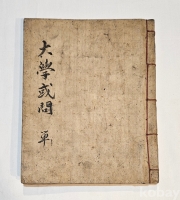 大學或問
單